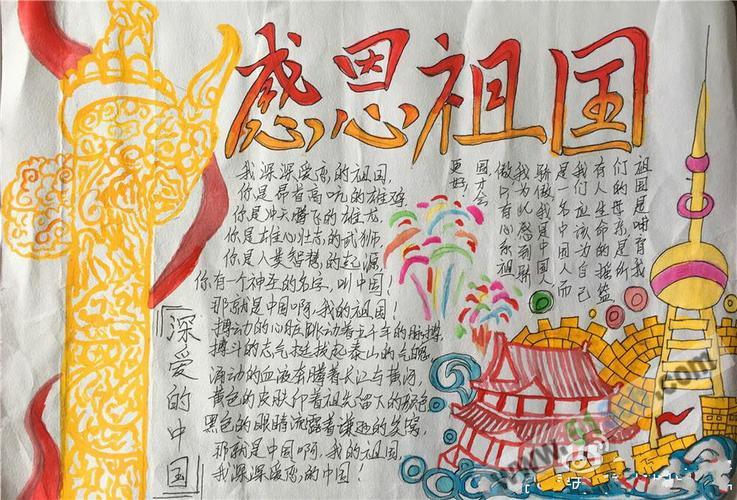 感恩祖国
我深深爱恋的祖国,
你是昂首高吭的雄鸡
你是冲天腾飞的雄龙
你是雄心壮志的武狮
你是人类智慧的起源,
你有一个神圣的名字,叫中国!
那就是中国啊,我的祖国!
搏动的心脏跳动着五千年的脉搏,
搏斗的志气挺拔起泰山的气魄
涌动的血液奔腾着长江与黄河,
黄色的皮肤印着祖先留下的颜色
黑色的眼睛流露着谦逊的笑窝,
那就是中国啊,我的祖国,
我深深爱恋的中国!
深爱的中国
祖国是哺育我
们的母亲,是所
有人生命的摇篮
我们应该为自己
是一名中国人而
骄傲,我是中国人
我为此感到骄
傲只有心系祖
国才会
更好